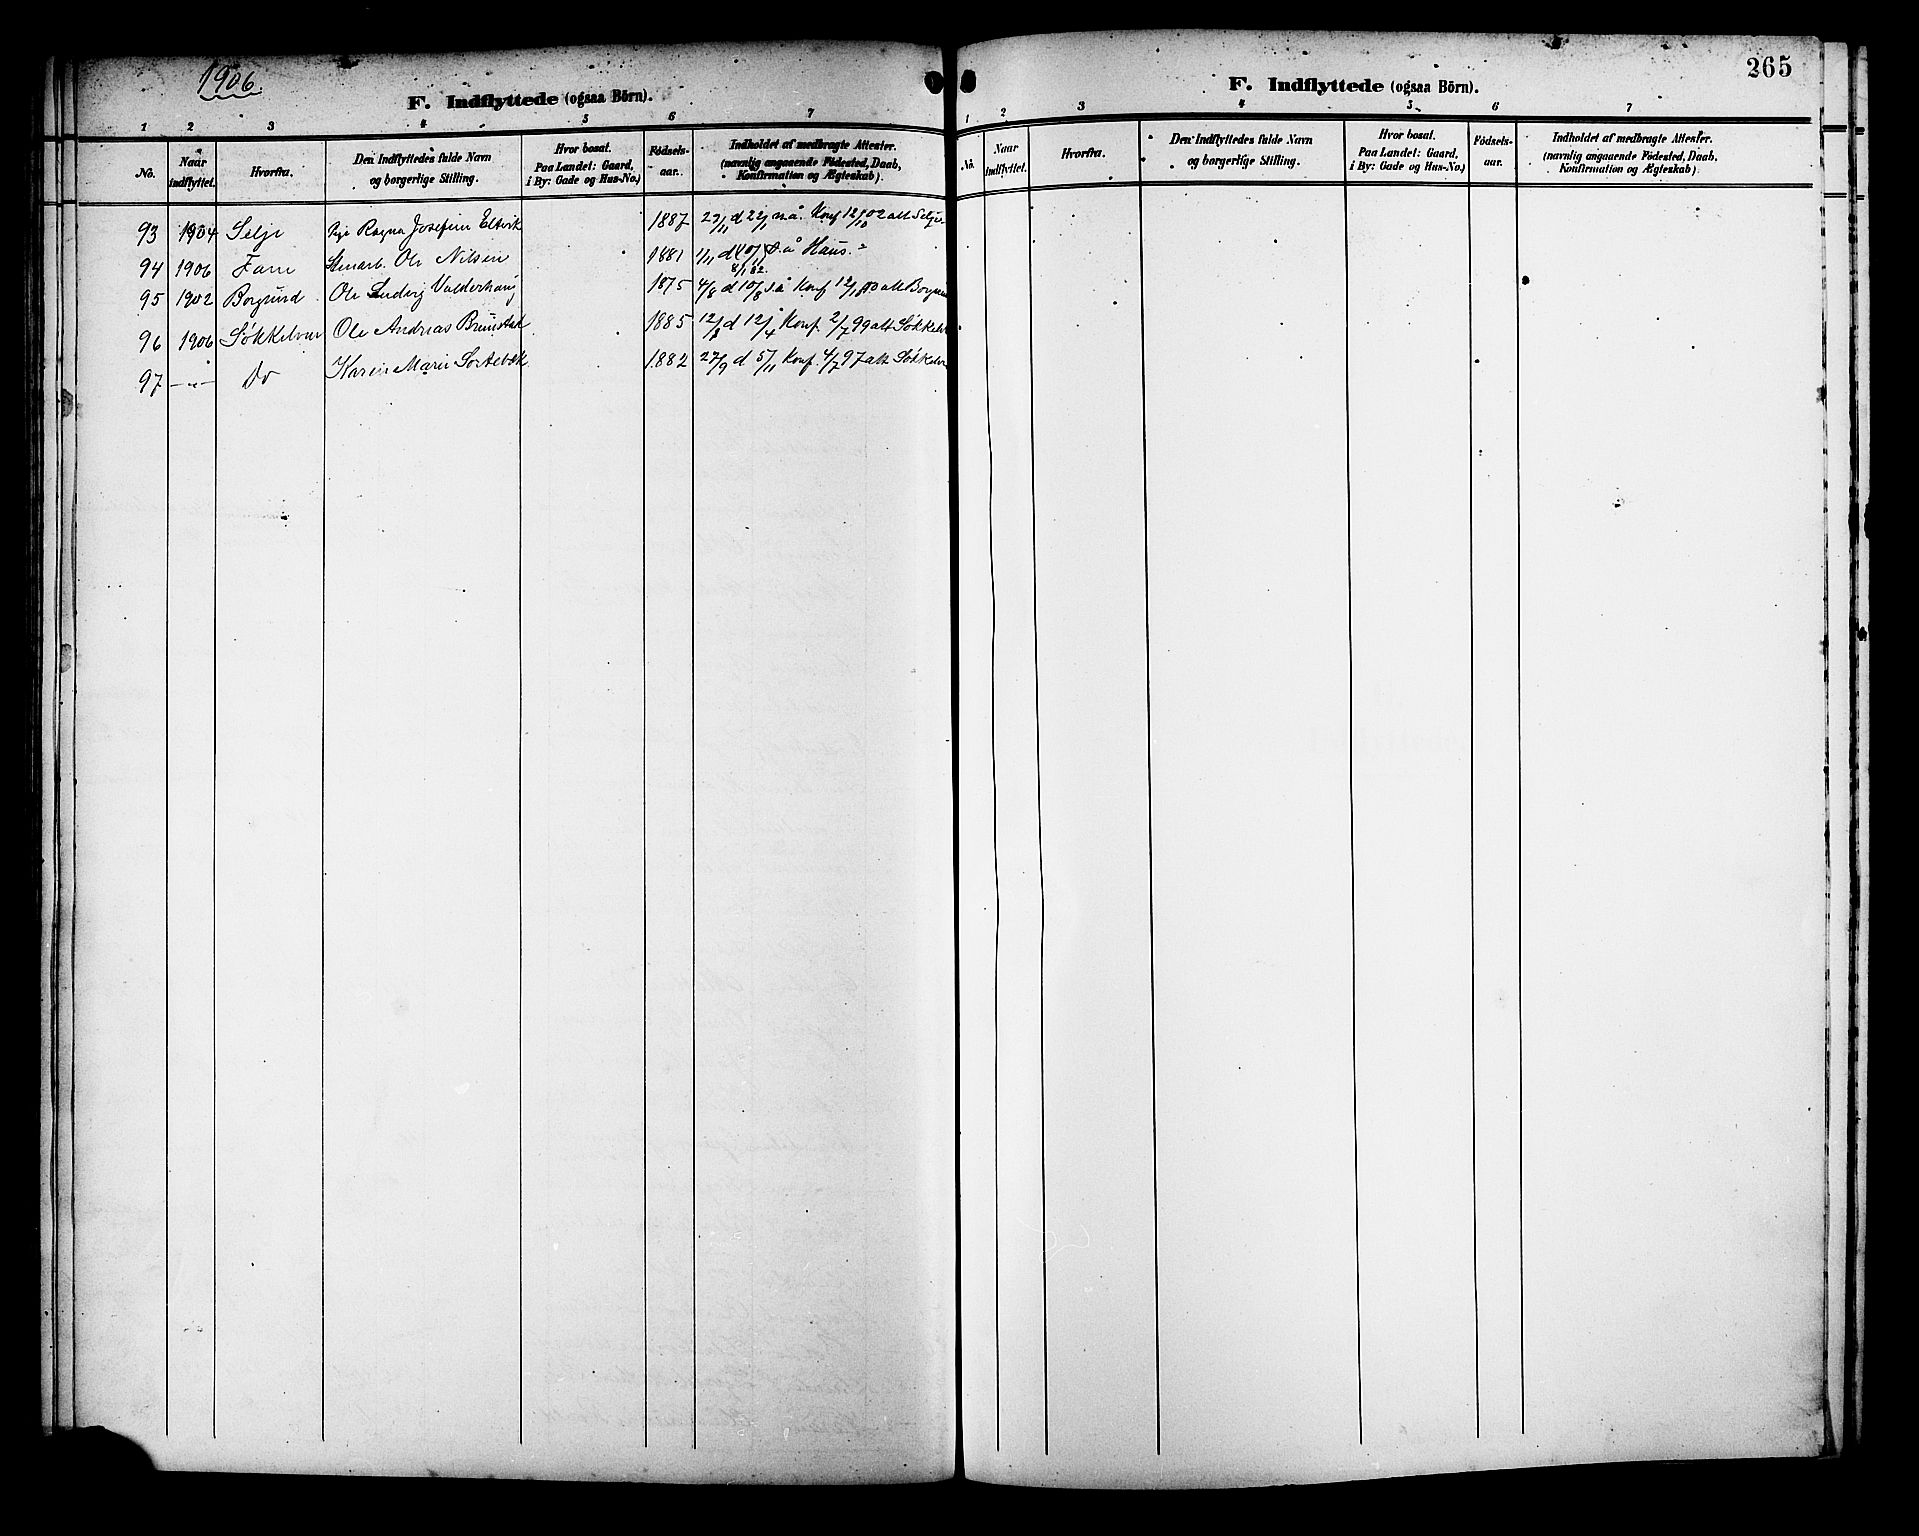 1906.
F. Indflyttede (ogsaa Börn).
1 2 3 4 5 6 7
No. Naar indflyttet. Hvorfra. Den Indflyttedes fulde Navn og borgerlige Stilling. Hvor bosat. Paa Landet: Gaard, i By: Gade og Hus-No.) Fódselsaar. Indholdet af medbragte Attester. (navnlig angaaende Födested, Daab, Konfirmation og Ægteskab).
93 1904 Selje Pige Ragna Josefine 1887 27/11 d 22/1 n.å. Konf 12/10 02 alt Selje
94 1906 Fane Stenarb. Ole Nilsen 1881 1/11 d Haus.
8/1 82.
95 1902 Borgund Ole Ludvig Valderhaug 1875 4/8 d 10/8 s.å Konf 12/10 90 alt Borgund
96 1906 Søkkelven Ole Andreas Brunstad 1885 12/3 d 12/4 Konf. 2/7 99 alt Søkkelv
97 —"— Do Karen Marie Sortebæk 1882 27/9 d 5/11 Konf. 4/7 97 alt Søkkelv
265
F. Indflyttede (ogsaa Börn).
1 2 3 4 5 6 7
No. Naar indflyttet. Hvorfra. Den Indflyttedes fulde Navn og borgerlige Stilling. Hvor bosat. Paa Landet: Gaard, i By: Gade og Hus-No.) Födselsaar. Indholdet af medbragte Attester. (navnlig angaaende Födested, Daab, Konfirmation og Ægteskab).